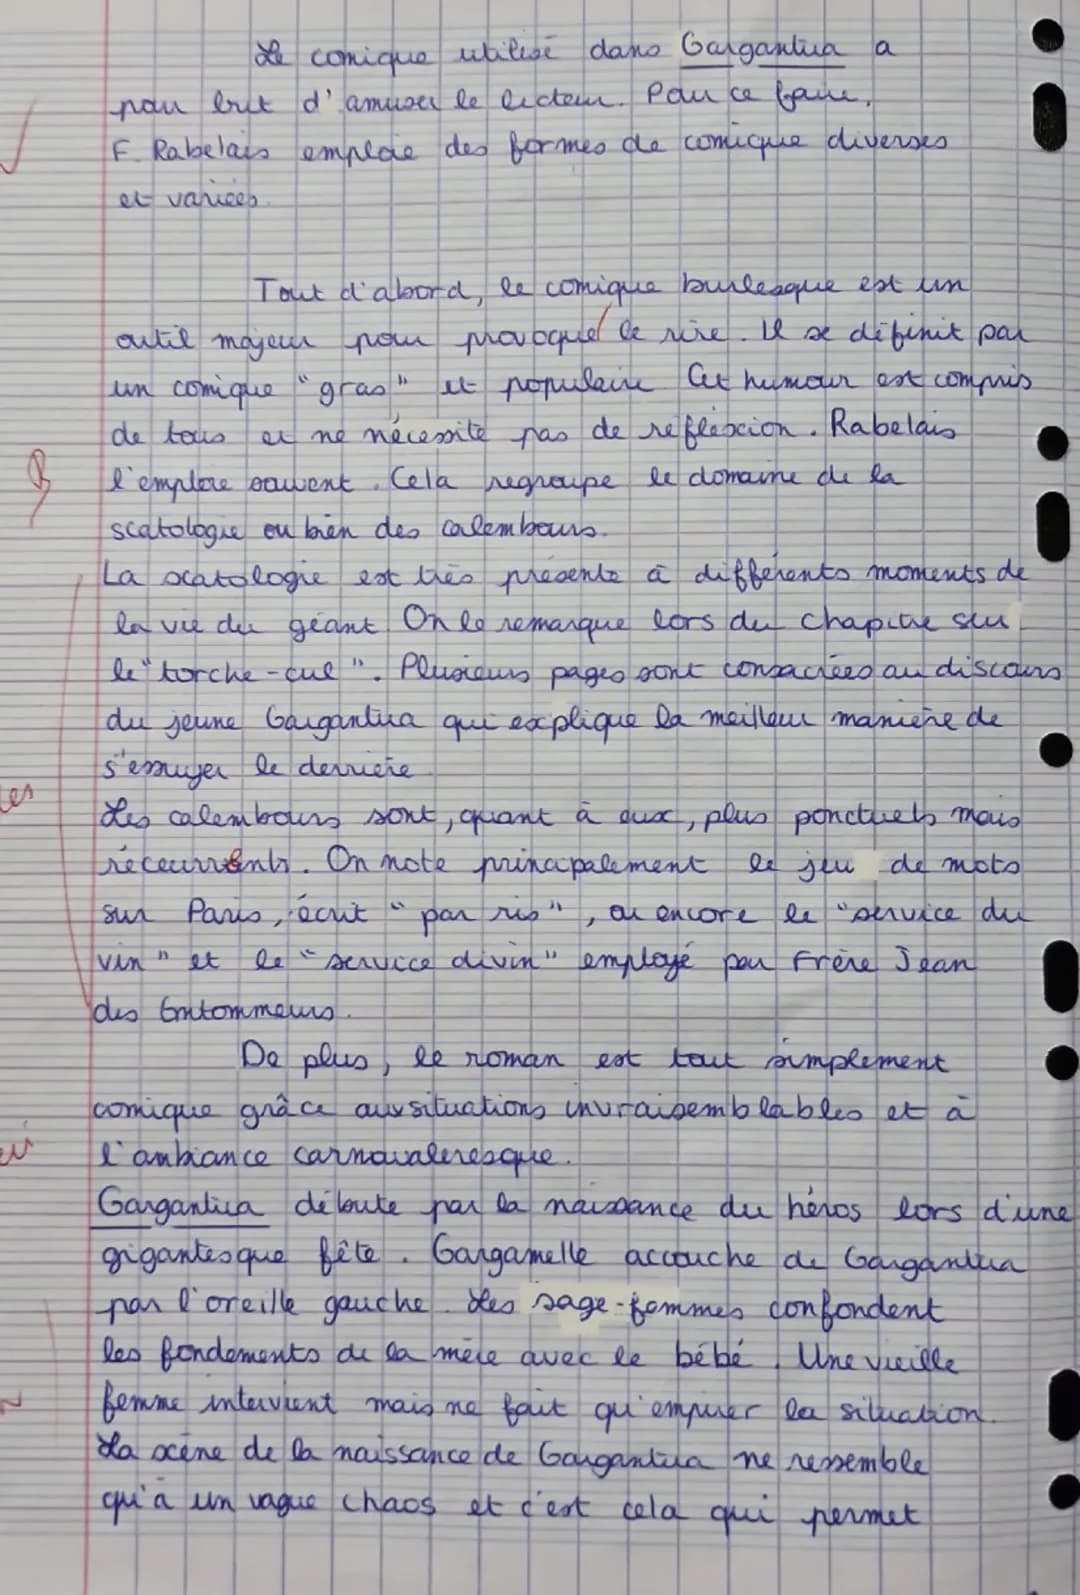 Le comique utilisé dans Gargantua a
pour but d'amuser le lecteur. Pour ce faire,
F. Rabelais emploie des formes de comique diverses
et variées.
Tout d'abord, le comique burlesque est un
outil majeur pour provoquer le rire. Il se définit par
un comique "gras" et populaire. Cet humour est compris
de tous et ne nécessite pas de réflexion. Rabelais
l'emploie souvent. Cela regroupe le domaine de la
scatologie ou bien des calembours.
La scatologie est très présente à différents moments de
la vie du géant. On le remarque lors du chapitre sur
le "torche-cul". Plusieurs pages sont consacrées au discours
du jeune Gargantua qui explique la meilleur manière de
s'essuyer le derrière
Les calembours sont, quant à eux, plus ponctuels mais
réceurrents. On note principalement le jeu de mots
sur Paris, écrit "par ris", ou encore le "service du
vin" et le "service divin" employé par Frère Jean
des Entommeurs.
De plus, le roman est tout simplement
comique grâce aux situations invraisemblables et à
l'ambiance carnavaleresque.
Gargantua débute par la naissance du héros lors d'une
gigantesque fête. Gargamelle accouche de Gargantua
par l'oreille gauche. Les sage-femmes confondent
les fondements de la mère avec le bébé. Une vieille
femme intervient mais ne fait qu'empirer la situation.
La scène de la naissance de Gargantua ne ressemble
qu'à un vague chaos et c'est cela qui permet